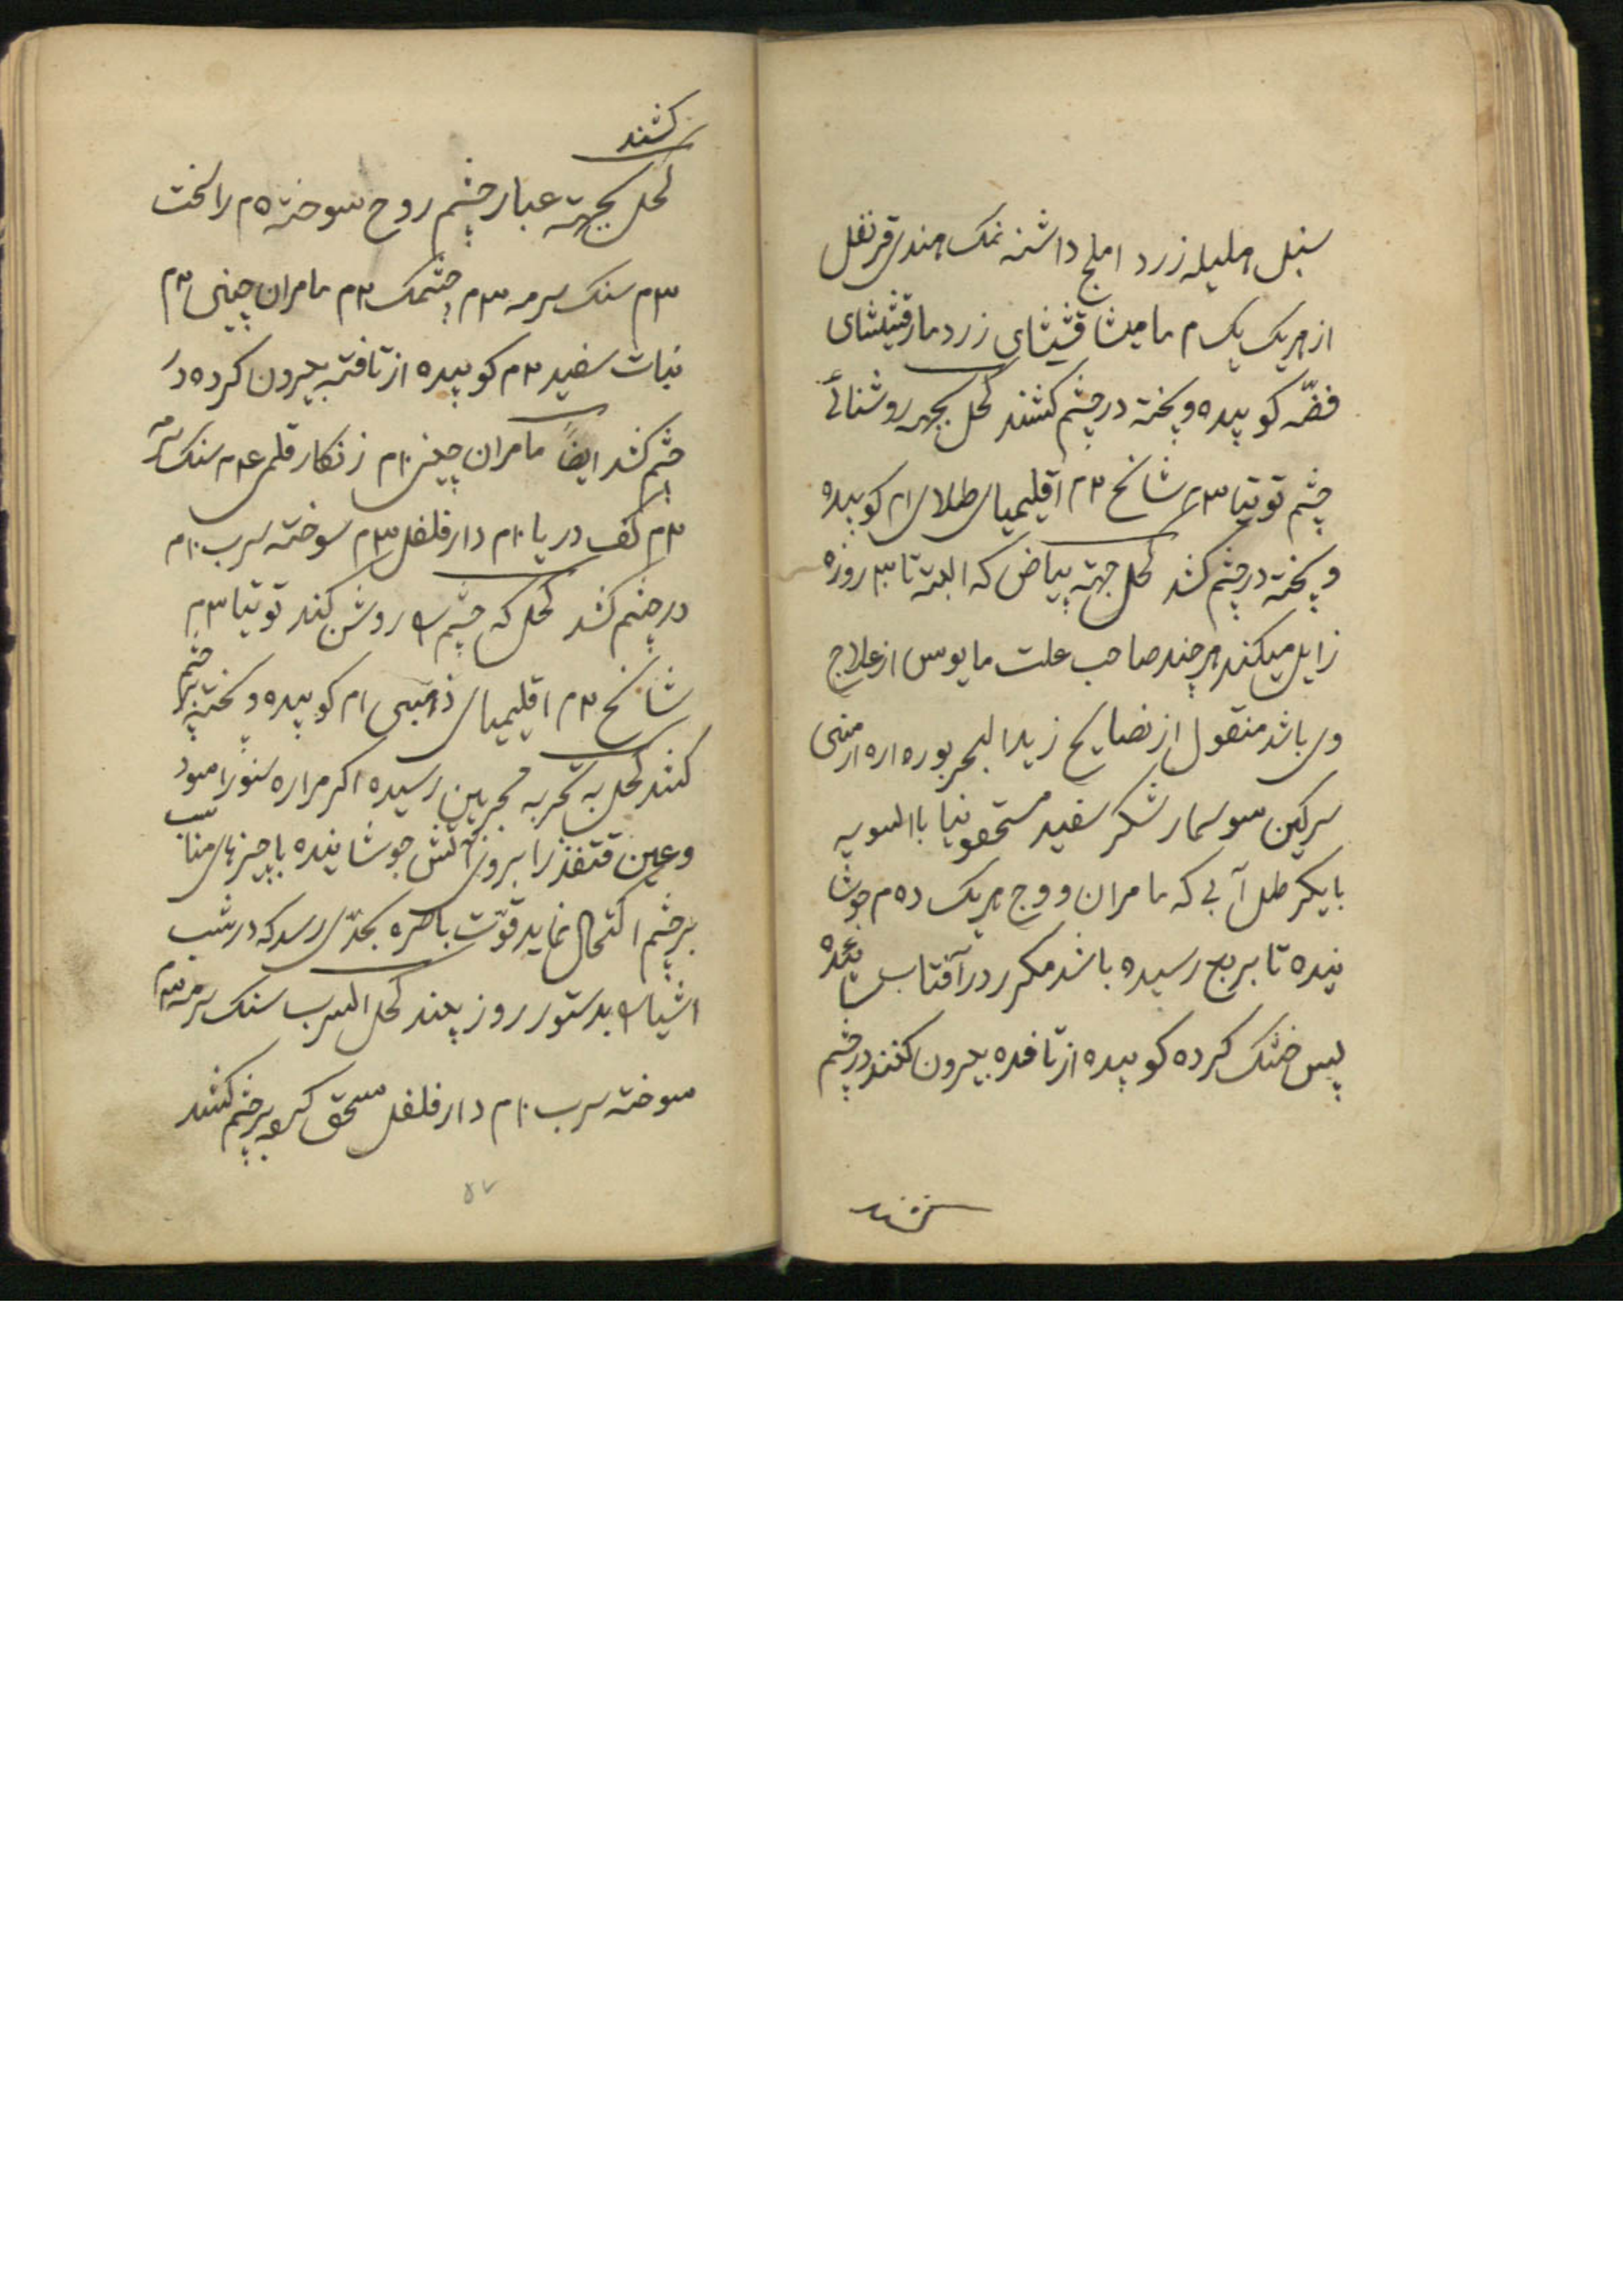 سنبل هلیله زرد املج داشنه نمک هندی قرنفل
از هر یک یک م مامیثا قثیثای زرد مارقثیشای
فضّه کوبیده و پخته در چشم کشند کحل بجهه روشنائی
چشم توتیا ۳م شانخ ۲م اقلیمیای طلای ام کوبیده
و پخته در چشم کشد کحل جهته بیاض که البته تا ۳ روزه
زایل میکند هر چند صاحب علت مایوس از علاج
وی باشد منقول از نصایح زبد البحر بوره اره ارمنی
سرکین سوسمار شکر سفید سقمونیا بالسویه
با یکرطل آبی که مامران و وج هر یک ده م جوشا
نیده تا بربع رسیده باشد مکرر در آفتاب
پس خشک کرده کوبیده از تافده بیرون کنند در چشم
کشند
کشند
کحل بجهته غبار چشم روح سوخته ۵م راسخت
۳م سنک سرمه ۳م چشمک ۲م مامران چینی ۳م
نبات سفید ۲م کوبیده از تافته بیرون کرده در
چشم کشد ایضاً مامران چینی ۱۰م زنکار قلمی ۴م سنک سرمه
۲م کف دریا ۱۰م دارفلفل ۳م سوخته سرب ۱۰م
در چشم کشد کحل که چشم را روشن کند توتیا ۳م
شانخ ۲م اقلیمیای ذهبی ام کوبیده و پخته بر چشم
کنند کحل به تجربه مجربین رسیده اکر مراره سنور اسود
و عین قنفذ را بروی آتش جوشانیده با چیزهای مناسب
بر چشم اکتحال نماید قوّت باصره بحدّی رسد که در شب
اشیا را بدستور روز بیند کحل السرب سنک سرمه ۳م
سوخته سرب ۱۰م دارفلفل سحق کرده بر چشم کشند
۵۷